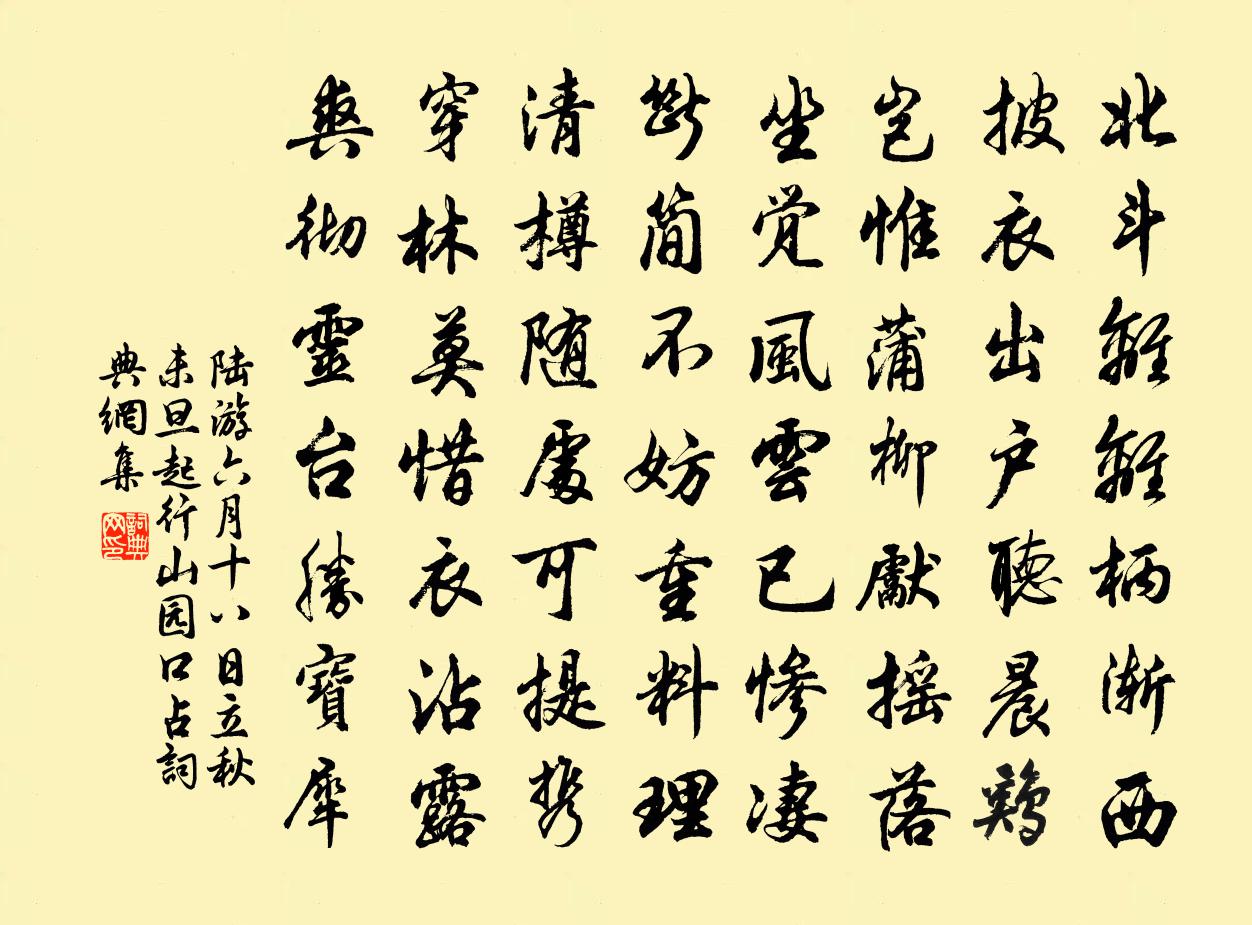 北斗離離柄漸西
披衣出户聽晨鷄
豈惟蒲柳獻摇落
坐覺風雲已慘凄
斷简不妨重料理
清樽随處可提携
穿林莫惜衣沾露
爽彻靈台勝寶犀
陆游六月十八日立秋
未旦起行山园口占詞
典網集
詞典網印